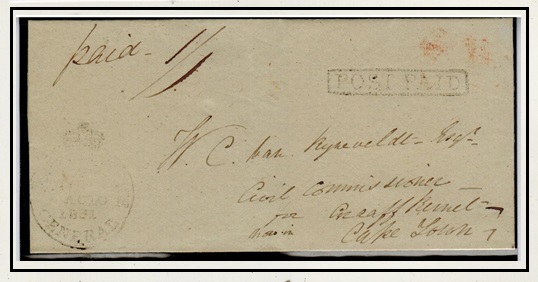 paid 1/1
POST PAID
W. C. van Ryneveldt Esqr
Civil Commissioner
Graaff Reinet
now in Cape Town
AUG 10
1831
GENERAL